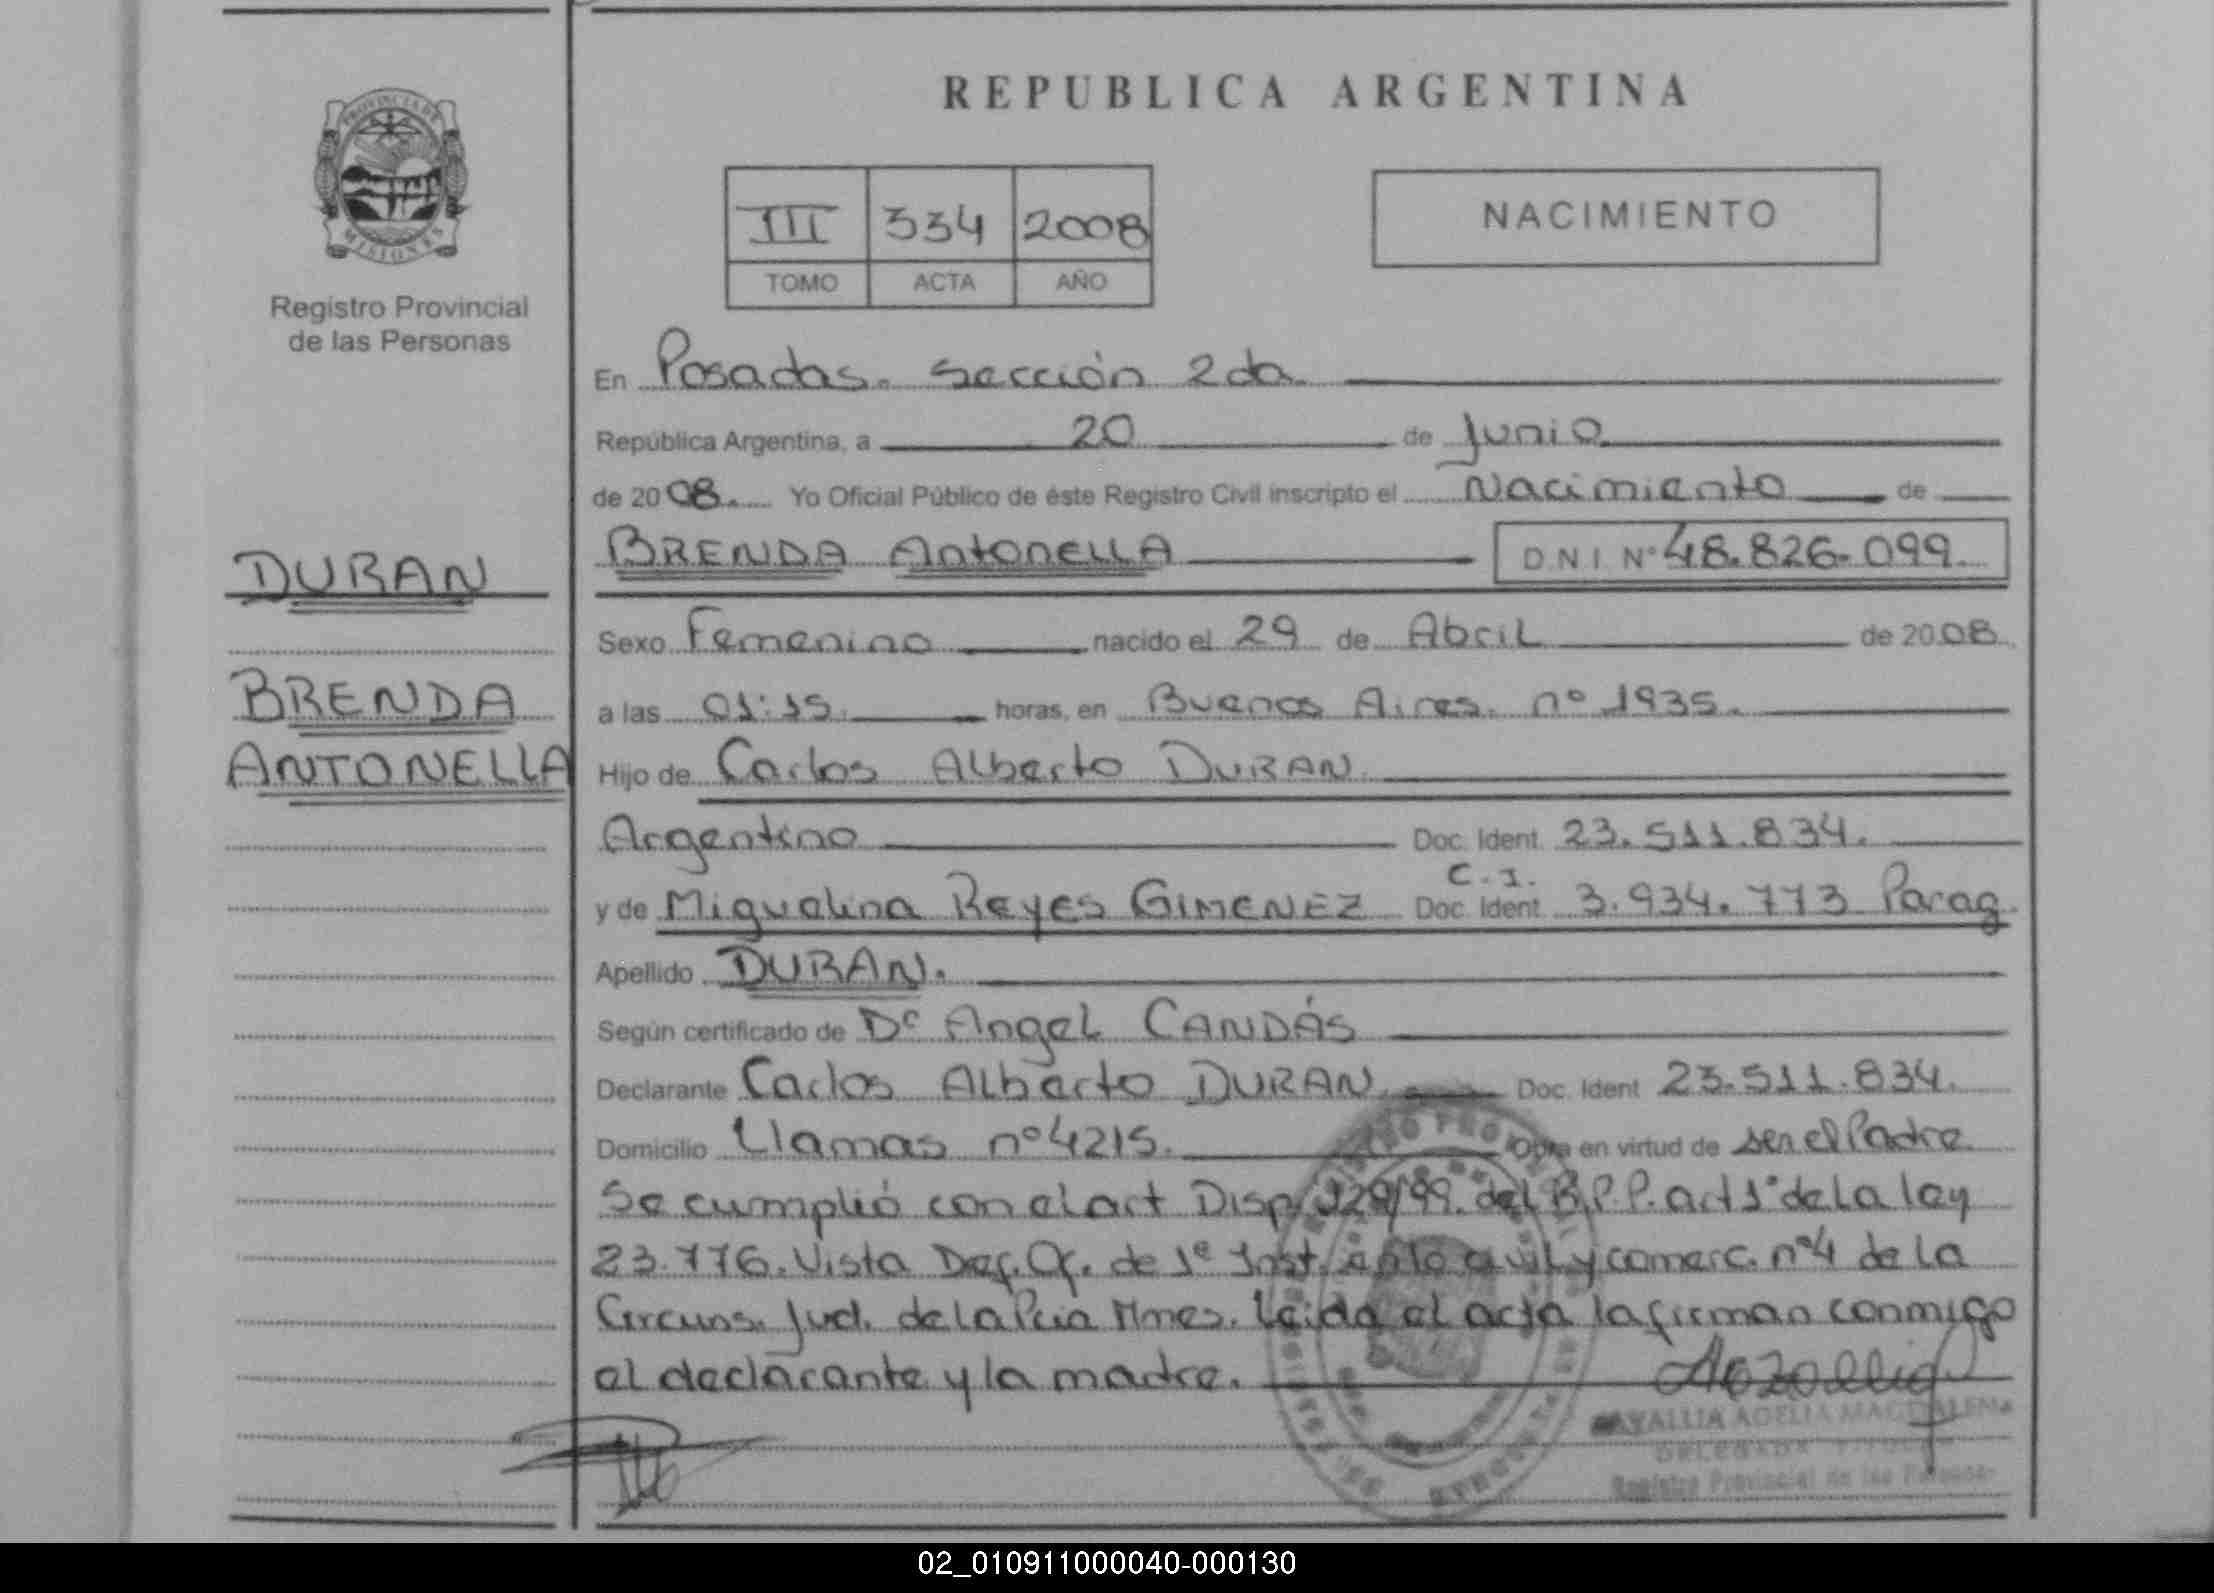 REPUBLICA ARGENTINA
PROVINCIA DE
MISIONES
Registro Provincial
de las Personas
III 334 2008
TOMO ACTA AÑO
NACIMIENTO
DURAN
BRENDA
ANTONELLA
En Posadas. Sección 2da.
República Argentina, a 20 de Junio
de 2008. Yo Oficial Público de éste Registro Civil inscripto el Nacimiento de
BRENDA AntonELLA D.N.I. Nº 48.826.099.
Sexo Femenino nacido el 29 de Abril de 2008
a las 01:15. horas, en Buenos Aires. nº 1935.
Hijo de Carlos Alberto DURAN.
Argentino Doc. Ident. 23.511.834.
C.I.
y de Miguelina Reyes GIMENEZ Doc. Ident. 3.934.773 Parag.
Apellido DURAN.
Según certificado de Dr Angel CANDÁS
Declarante Carlos Alberto DURAN. Doc. Ident 23.511.834.
Domicilio Llamas nº 4215. Obra en virtud de ser el Padre
Se cumplió con el art Disp. 129/99. del R.P.P. art 1º de La ley
23.776. Vista Def. Of. de 1º Inst. en lo civil y comerc. nº4 de La
Circuns. Jud. de La Pcia Mnes. Leída el acta la firman conmigo
el declarante y la madre.
ADELIA MAGDALENA
DELEGADA TITULAR
Registro Provincial de las Personas
02_010911000040-000130